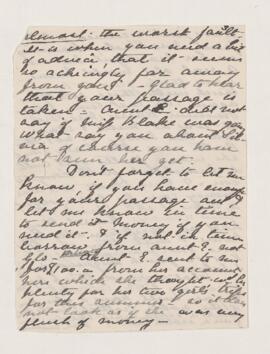 almost the worst fault
It is when you need a bit
of advice, that it seems
so achingly far away
from you. Glad to hear
that your passage is
taken - Aunt E. did not
say if Miss Blake was going
What say you about
of course you have
not seen her yet.
Don't forget to let me
know, if you have enough
for your passage and
let me know in time
to send it money if you
need it - & if not in time
borrow from Aunt E. not
Aunt E. sent to me
for $100.00 from his account
here which she thought
plenty for her two girls
for this summer - so it does
not look as if she was very
flush of money -